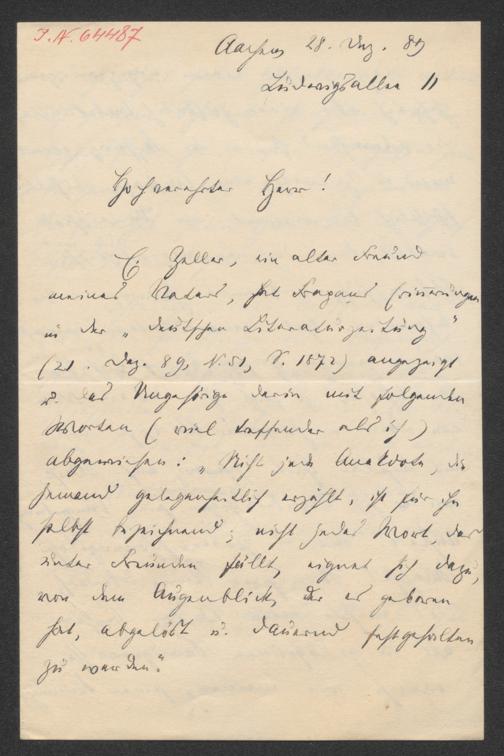 I.N. 64487
Aachen 28. Dez. 89
Ludwigsallee 11
Hochverehrter Herr!
E. Zeller, ein alter Freund
meines Vaters, hat Frapans Erinnerungen
in der „Deutschen Literaturzeitung"
(21. Dez. 89, N. 51, S. 1872) angezeigt
u. das Ungehörige darin mit folgenden
Worten (viel treffender als ich)
abgewiesen: „Nicht jede Anekdote, die
jemand gelegentlich erzählt, ist für ihn
selbst bezeichnend; nicht jedes Wort, das
unter Freunden fällt, eignet sich dazu,
von dem Augenblick, der es geboren
hat, abgelöst u. dauernd festgehalten
zu werden."